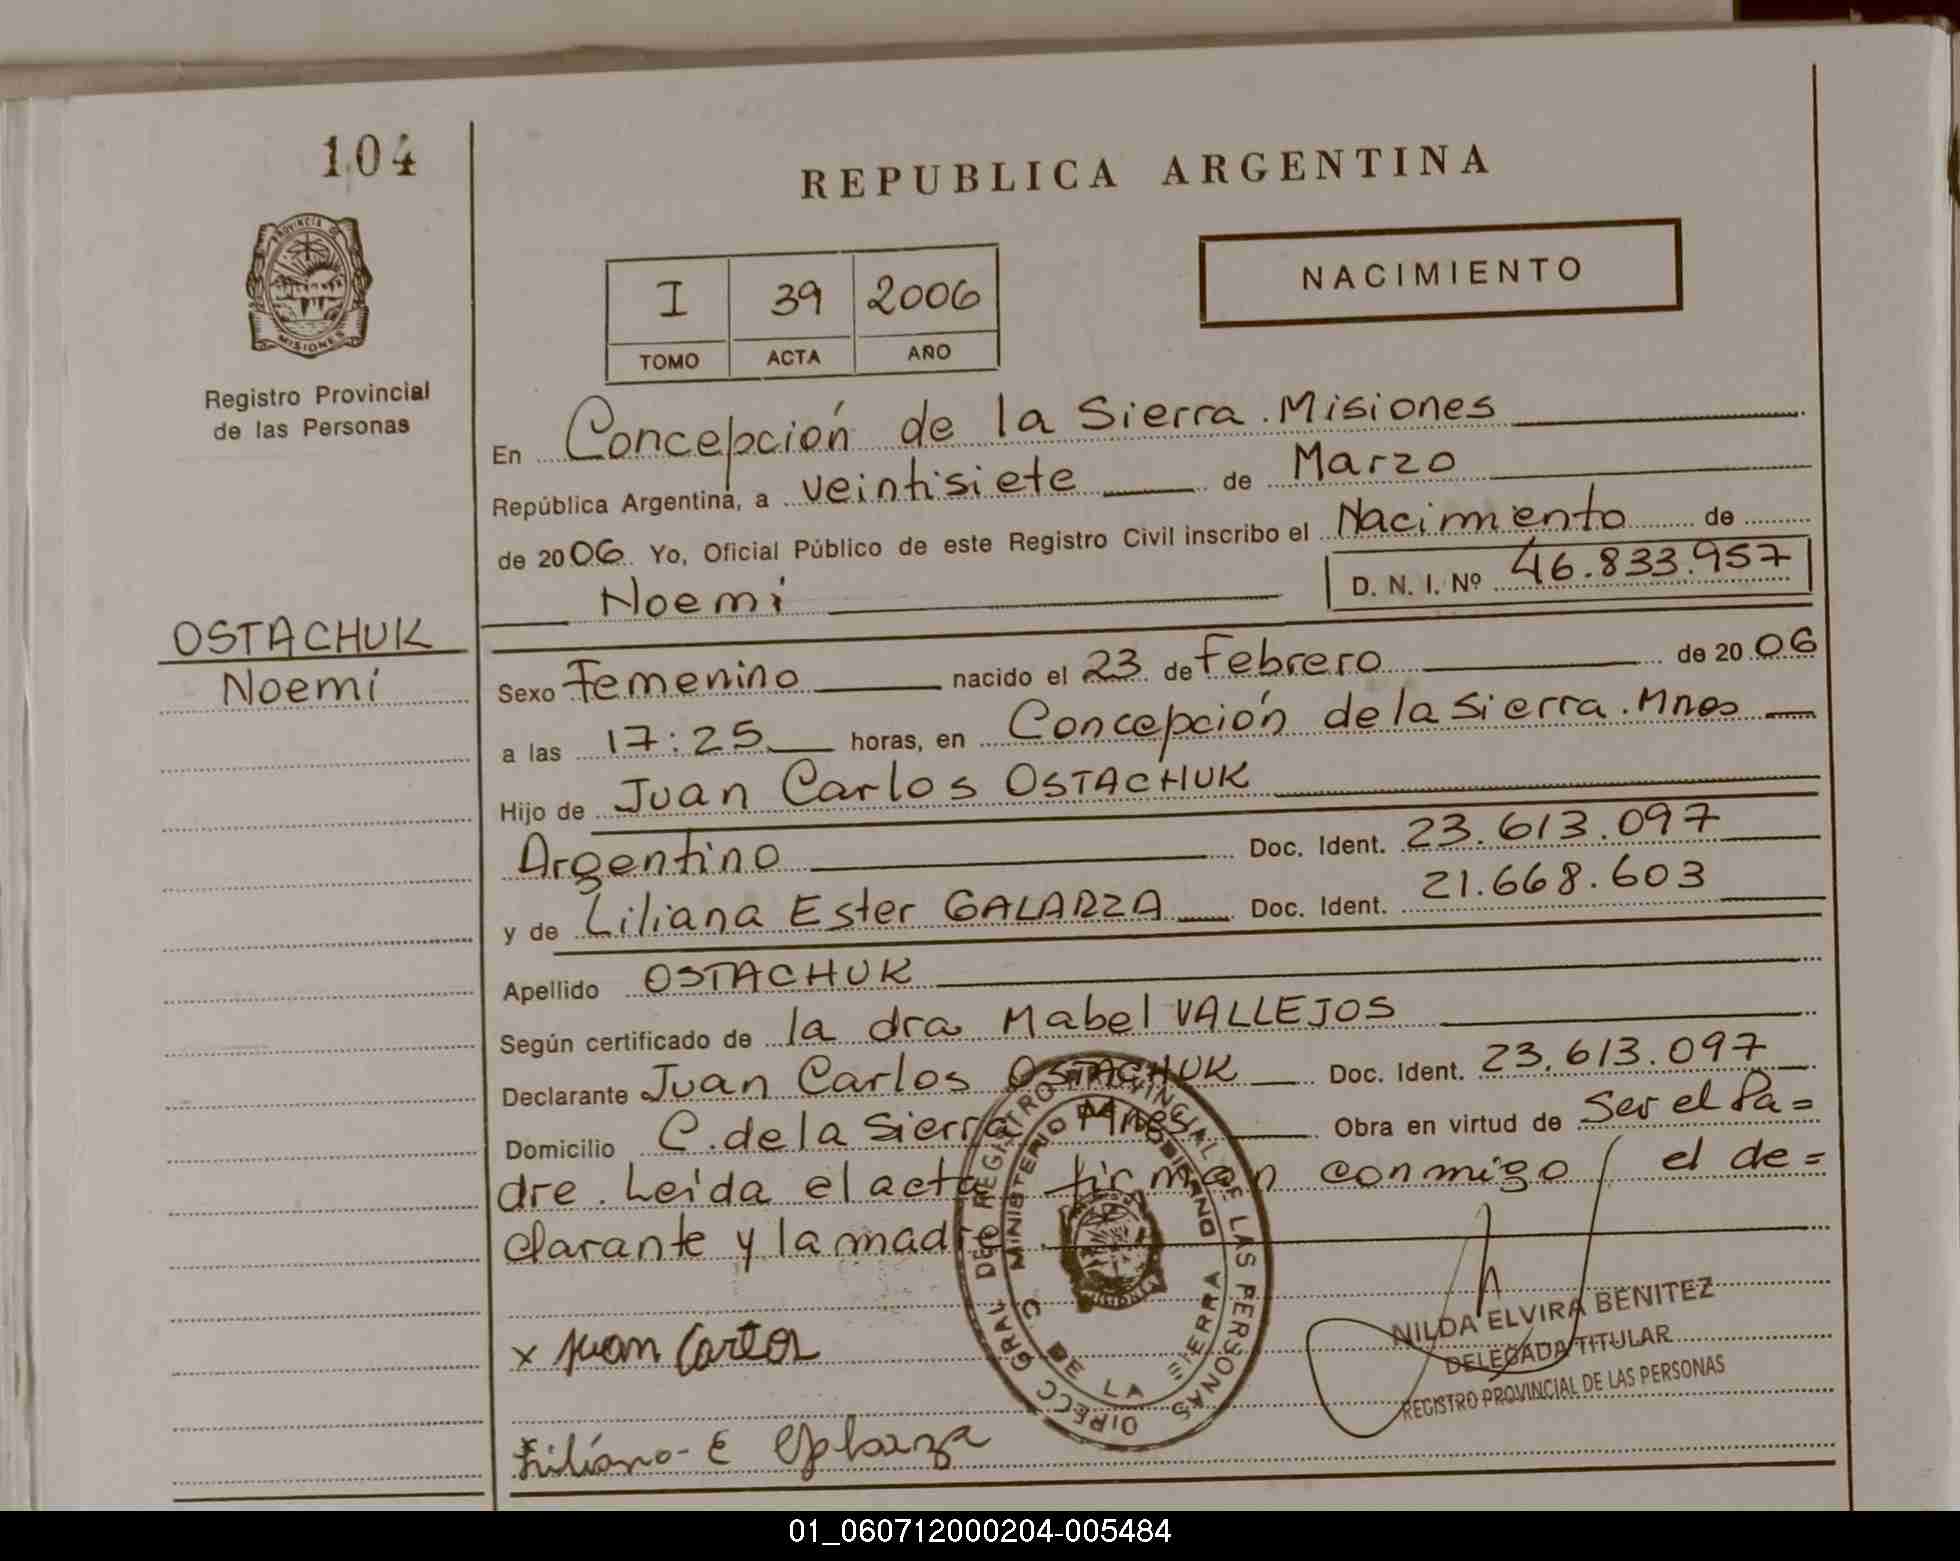 104
REPUBLICA ARGENTINA
PROVINCIA DE MISIONES
Registro Provincial
de las Personas
NACIMIENTO
I 39 2006
TOMO ACTA AÑO
En Concepción de la Sierra. Misiones
República Argentina, a veintisiete de Marzo
de 2006. Yo, Oficial Público de este Registro Civil inscribo el Nacimiento de
Noemi D. N. I. Nº 46.833.957
OSTACHUK
Noemí
Sexo Femenino nacido el 23 de Febrero de 2006
a las 17:25 horas, en Concepción de la Sierra. Mnes
Hijo de Juan Carlos OSTACHUK
Argentino Doc. Ident. 23.613.097
y de Liliana Ester GALARZA Doc. Ident. 21.668.603
Apellido OSTACHUK
Según certificado de la dra Mabel VALLEJOS
Declarante Juan Carlos OSTACHUK Doc. Ident. 23.613.097
Domicilio C. de la Sierra Mnes Obra en virtud de Ser el Pa=
dre. Leída el acta firman conmigo el de=
clarante y la madre
DIRECC GRAL DEL REGISTRO PROVINCIAL DE LAS PERSONAS
MINISTERIO DE GOBIERNO
C DE LA SIERRA
x Juan Carlos
NILDA ELVIRA BENITEZ
DELEGADA TITULAR
REGISTRO PROVINCIAL DE LAS PERSONAS
Liliana E Galarza
01_060712000204-005484